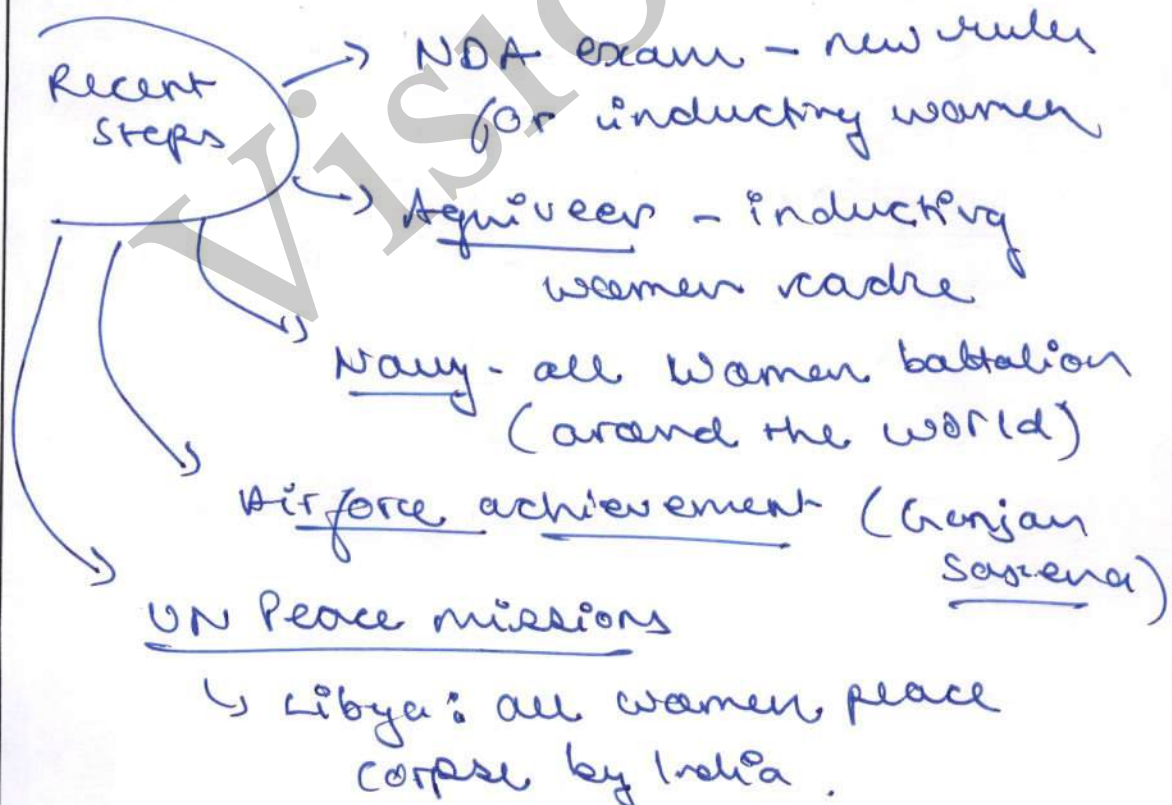 Recent
steps
→ NDA exam - new rules
for inducting women
→ Agniveer - inducting
women cadre
Navy - all women battalion
(around the world)
Airforce achievement (Gunjan
Saxena)
UN Peace missions
↳ Libya: all women peace
corpse by India.
Visio